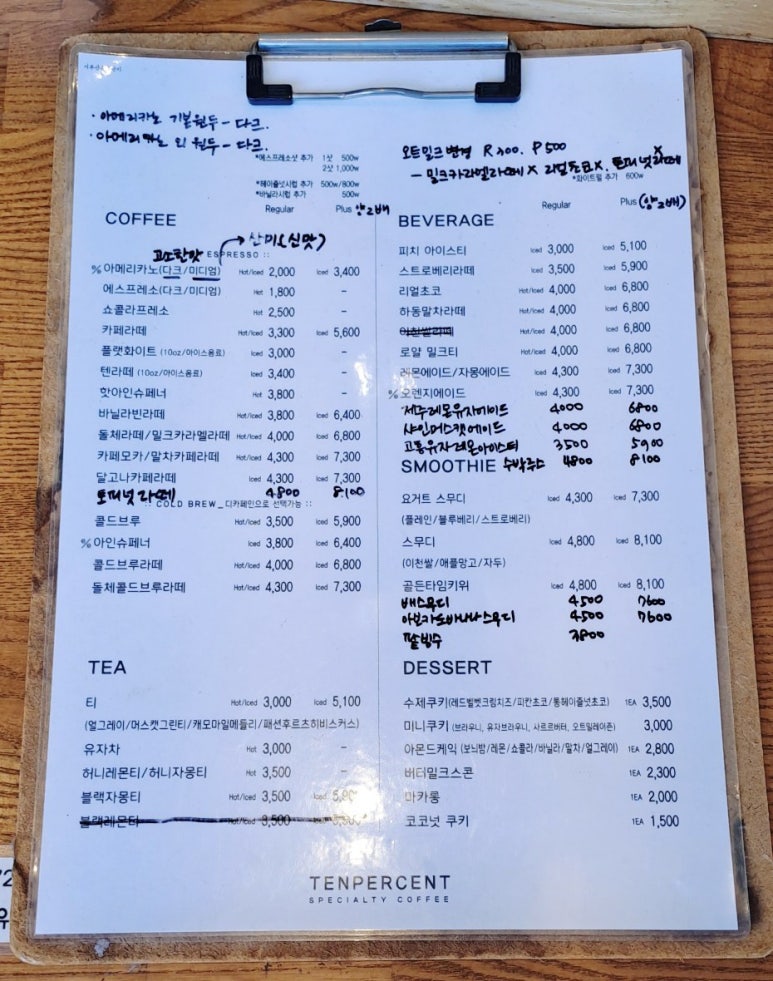 · 아메리카노 기본원두 - 다크.
· 아메리카노 외 원두 - 다크.
*에스프레소샷 추가 1샷 500w
2샷 1,000w
*헤이즐넛시럽 추가 500w/800w
*바닐라시럽 추가 500w
Regular Plus 양2배
COFFEE
고소한맛 → 산미(신맛)
ESPRESSO ::
% 아메리카노(다크/미디엄) Hot/Iced 2,000 Iced 3,400
에스프레소(다크/미디엄) Hot 1,800 -
쇼콜라프레소 Hot 2,500 -
카페라떼 Hot/Iced 3,300 Iced 5,600
플랫화이트 (10oz/아이스음료) Iced 3,000 -
텐라떼 (10oz/아이스음료) Iced 3,400 -
핫아인슈페너 Hot 3,800 -
바닐라빈라떼 Hot/Iced 3,800 Iced 6,400
돌체라떼/밀크카라멜라떼 Hot/Iced 4,000 Iced 6,800
카페모카/말차카페라떼 Hot/Iced 4,300 Iced 7,300
달고나카페라떼 Iced 4,300 Iced 7,300
토피넛 라떼 4800 8100
:: COLD BREW_디카페인으로 선택가능 ::
콜드브루 Hot/Iced 3,500 Iced 5,900
% 아인슈페너 Iced 3,800 Iced 6,400
콜드브루라떼 Hot/Iced 4,000 Iced 6,800
돌체콜드브루라떼 Hot/Iced 4,300 Iced 7,300
TEA
티 Hot/Iced 3,000 Iced 5,100
(얼그레이/머스캣그린티/캐모마일메들리/패션후르츠히비스커스)
유자차 Hot 3,000 -
허니레몬티/허니자몽티 Hot 3,500 -
블랙자몽티 Hot/Iced 3,500 Iced 5,90
블랙레몬티 Hot/Iced 3,500
오트밀크변경 R 300. P 500
- 밀크카라멜라떼 X 리얼초코X. 토피넛라떼 X
*화이트펄 추가 600w
Regular Plus (양2배)
BEVERAGE
피치 아이스티 Iced 3,000 Iced 5,100
스트로베리라떼 Iced 3,500 Iced 5,900
리얼초코 Hot/Iced 4,000 Iced 6,800
하동말차라떼 Hot/Iced 4,000 Iced 6,800
이천쌀라떼 Hot/Iced 4,000 Iced 6,800
로얄 밀크티 Hot/Iced 4,000 Iced 6,800
레몬에이드/자몽에이드 Iced 4,300 Iced 7,300
% 오렌지에이드 Iced 4,300 Iced 7,300
제주레몬유자에이드 4000 6800
샤인머스캣에이드 4000 6800
고흥유자레몬아이스티 3500 5900
SMOOTHIE 수박주스 4800 8100
요거트 스무디 Iced 4,300 Iced 7,300
(플레인/블루베리/스트로베리)
스무디 Iced 4,800 Iced 8,100
(이천쌀/애플망고/자두)
골든타임키위 Iced 4,800 Iced 8,100
배스무디 4500 7600
아보카도바나나스무디 4500 7600
팥빙수 7800
DESSERT
수제쿠키(레드벨벳크림치즈/피칸초코/통헤이즐넛초코) 1EA 3,500
미니쿠키 (브라우니, 유자브라우니, 사르르버터, 오트밀레이즌) 3,000
아몬드케익 (보늬밤/레몬/쇼콜라/바닐라/말차/얼그레이) 1EA 2,800
버터밀크스콘 1EA 2,300
마카롱 1EA 2,000
코코넛 쿠키 1EA 1,500
TENPERCENT
SPECIALTY COFFEE